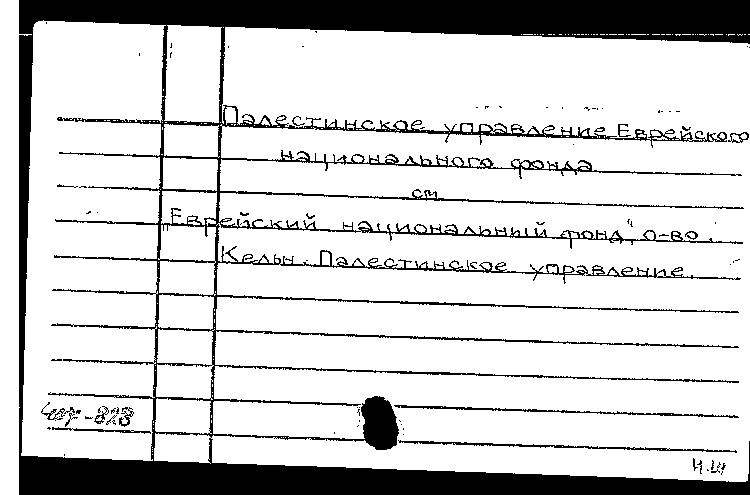 Палестинское управление Еврейского
национального фонда
см
„Еврейский национальный фонд", о-во.
Кельн. Палестинское управление.
-828
Н.Ш